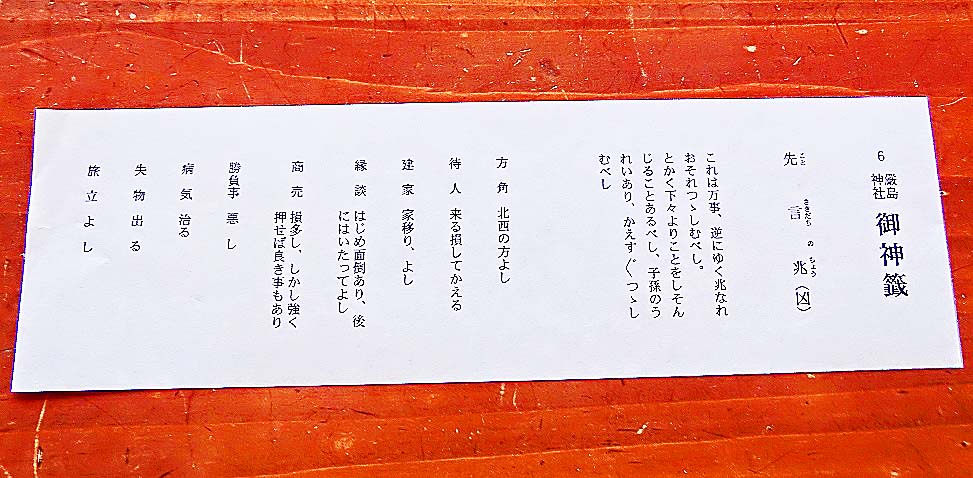 6 厳島神社 御神籤
先言兆(凶)
こと さきだち の しよう
これは万事、逆にゆく兆なれ
おそれつゝしむべし。
とかく下々よりことをしそん
じることあるべし、子孫のう
れいあり、かえす〴〵つゝし
むべし
方角 北西の方よし
待人 来る損してかえる
建家 家移り、よし
縁談 はじめ面倒あり、後
にはいたってよし
商売 損多し、しかし強く
押せば良き事もあり
勝負事 悪し
病気 治る
失物 出る
旅立 よし